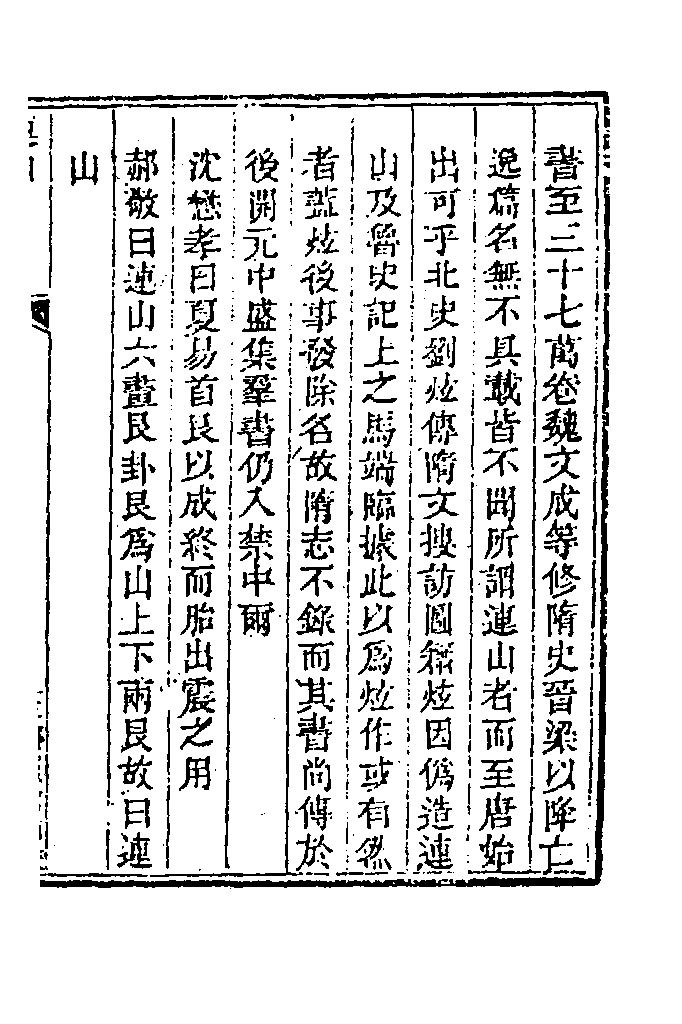 書至三十七萬卷魏文成等修隋史晉梁以降亡
逸篇名無不具載皆不聞所謂連山者而至唐始
出可乎北史劉炫傳隋文搜訪圖籍炫因偽造連
山及魯史記上之馬端臨據此以為炫作或有然
者蓋炫後事發除名故隋志不錄而其書尚傳於
後開元中盛集羣書仍入禁中爾
沈懋孝曰夏易首艮以成終而胎出震之用
郝敬曰連山六畫艮卦艮爲山上下兩艮故曰連
山